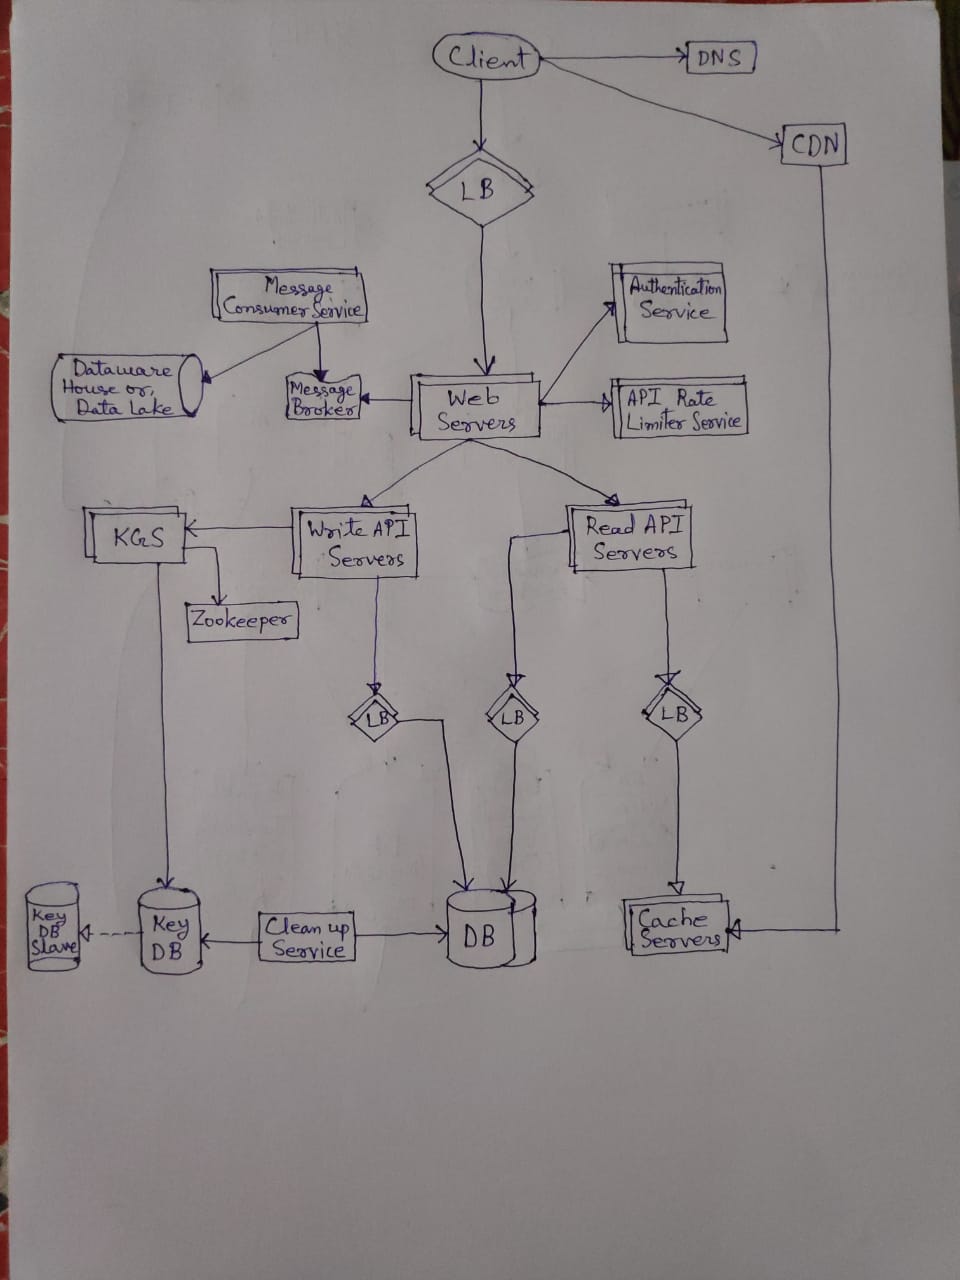 Client
DNS
CDN
LB
Message
Consumer Service
Authentication
Service
Dataware
House or,
Data Lake
Message
Broker
Web
Servers
API Rate
Limiter Service
KGS
Write API
Servers
Read API
Servers
Zookeeper
LB
LB
LB
Key
DB
Slave
Key
DB
Clean up
Service
DB
Cache
Servers